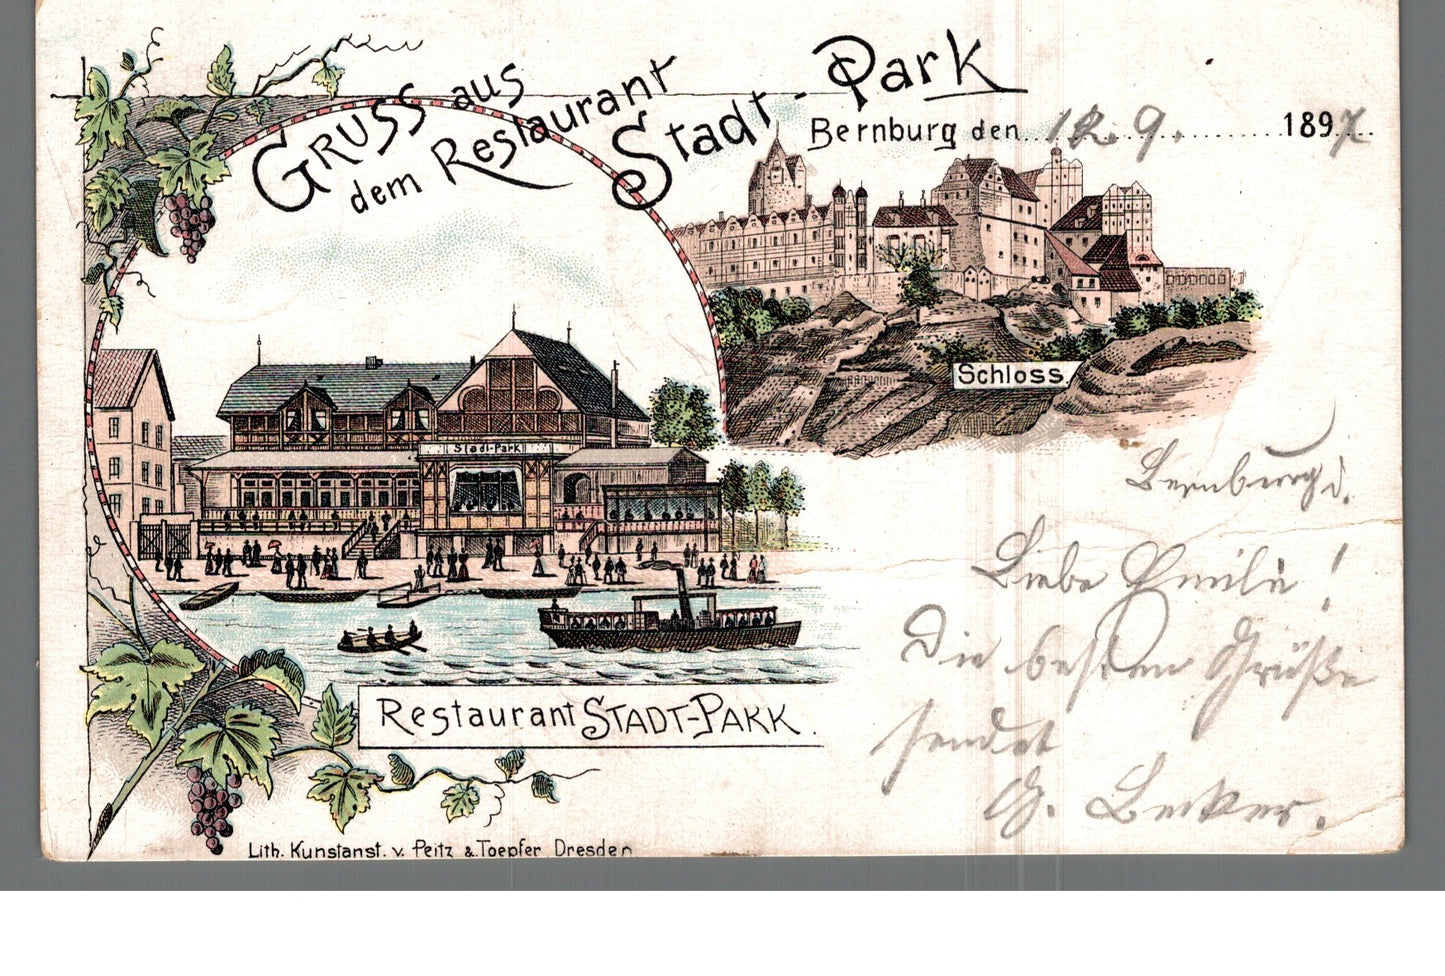 GRUSS aus
dem Restaurant
Stadt-Park
Bernburg den 12.9. 1897
Schloss.
Stadt-Park
Bernburg d.
Liebe Emilie!
Die besten Grüße
sendet
G. Becker.
Restaurant STADT-PARK.
Lith. Kunstanst. v. Peitz & Toepfer Dresden